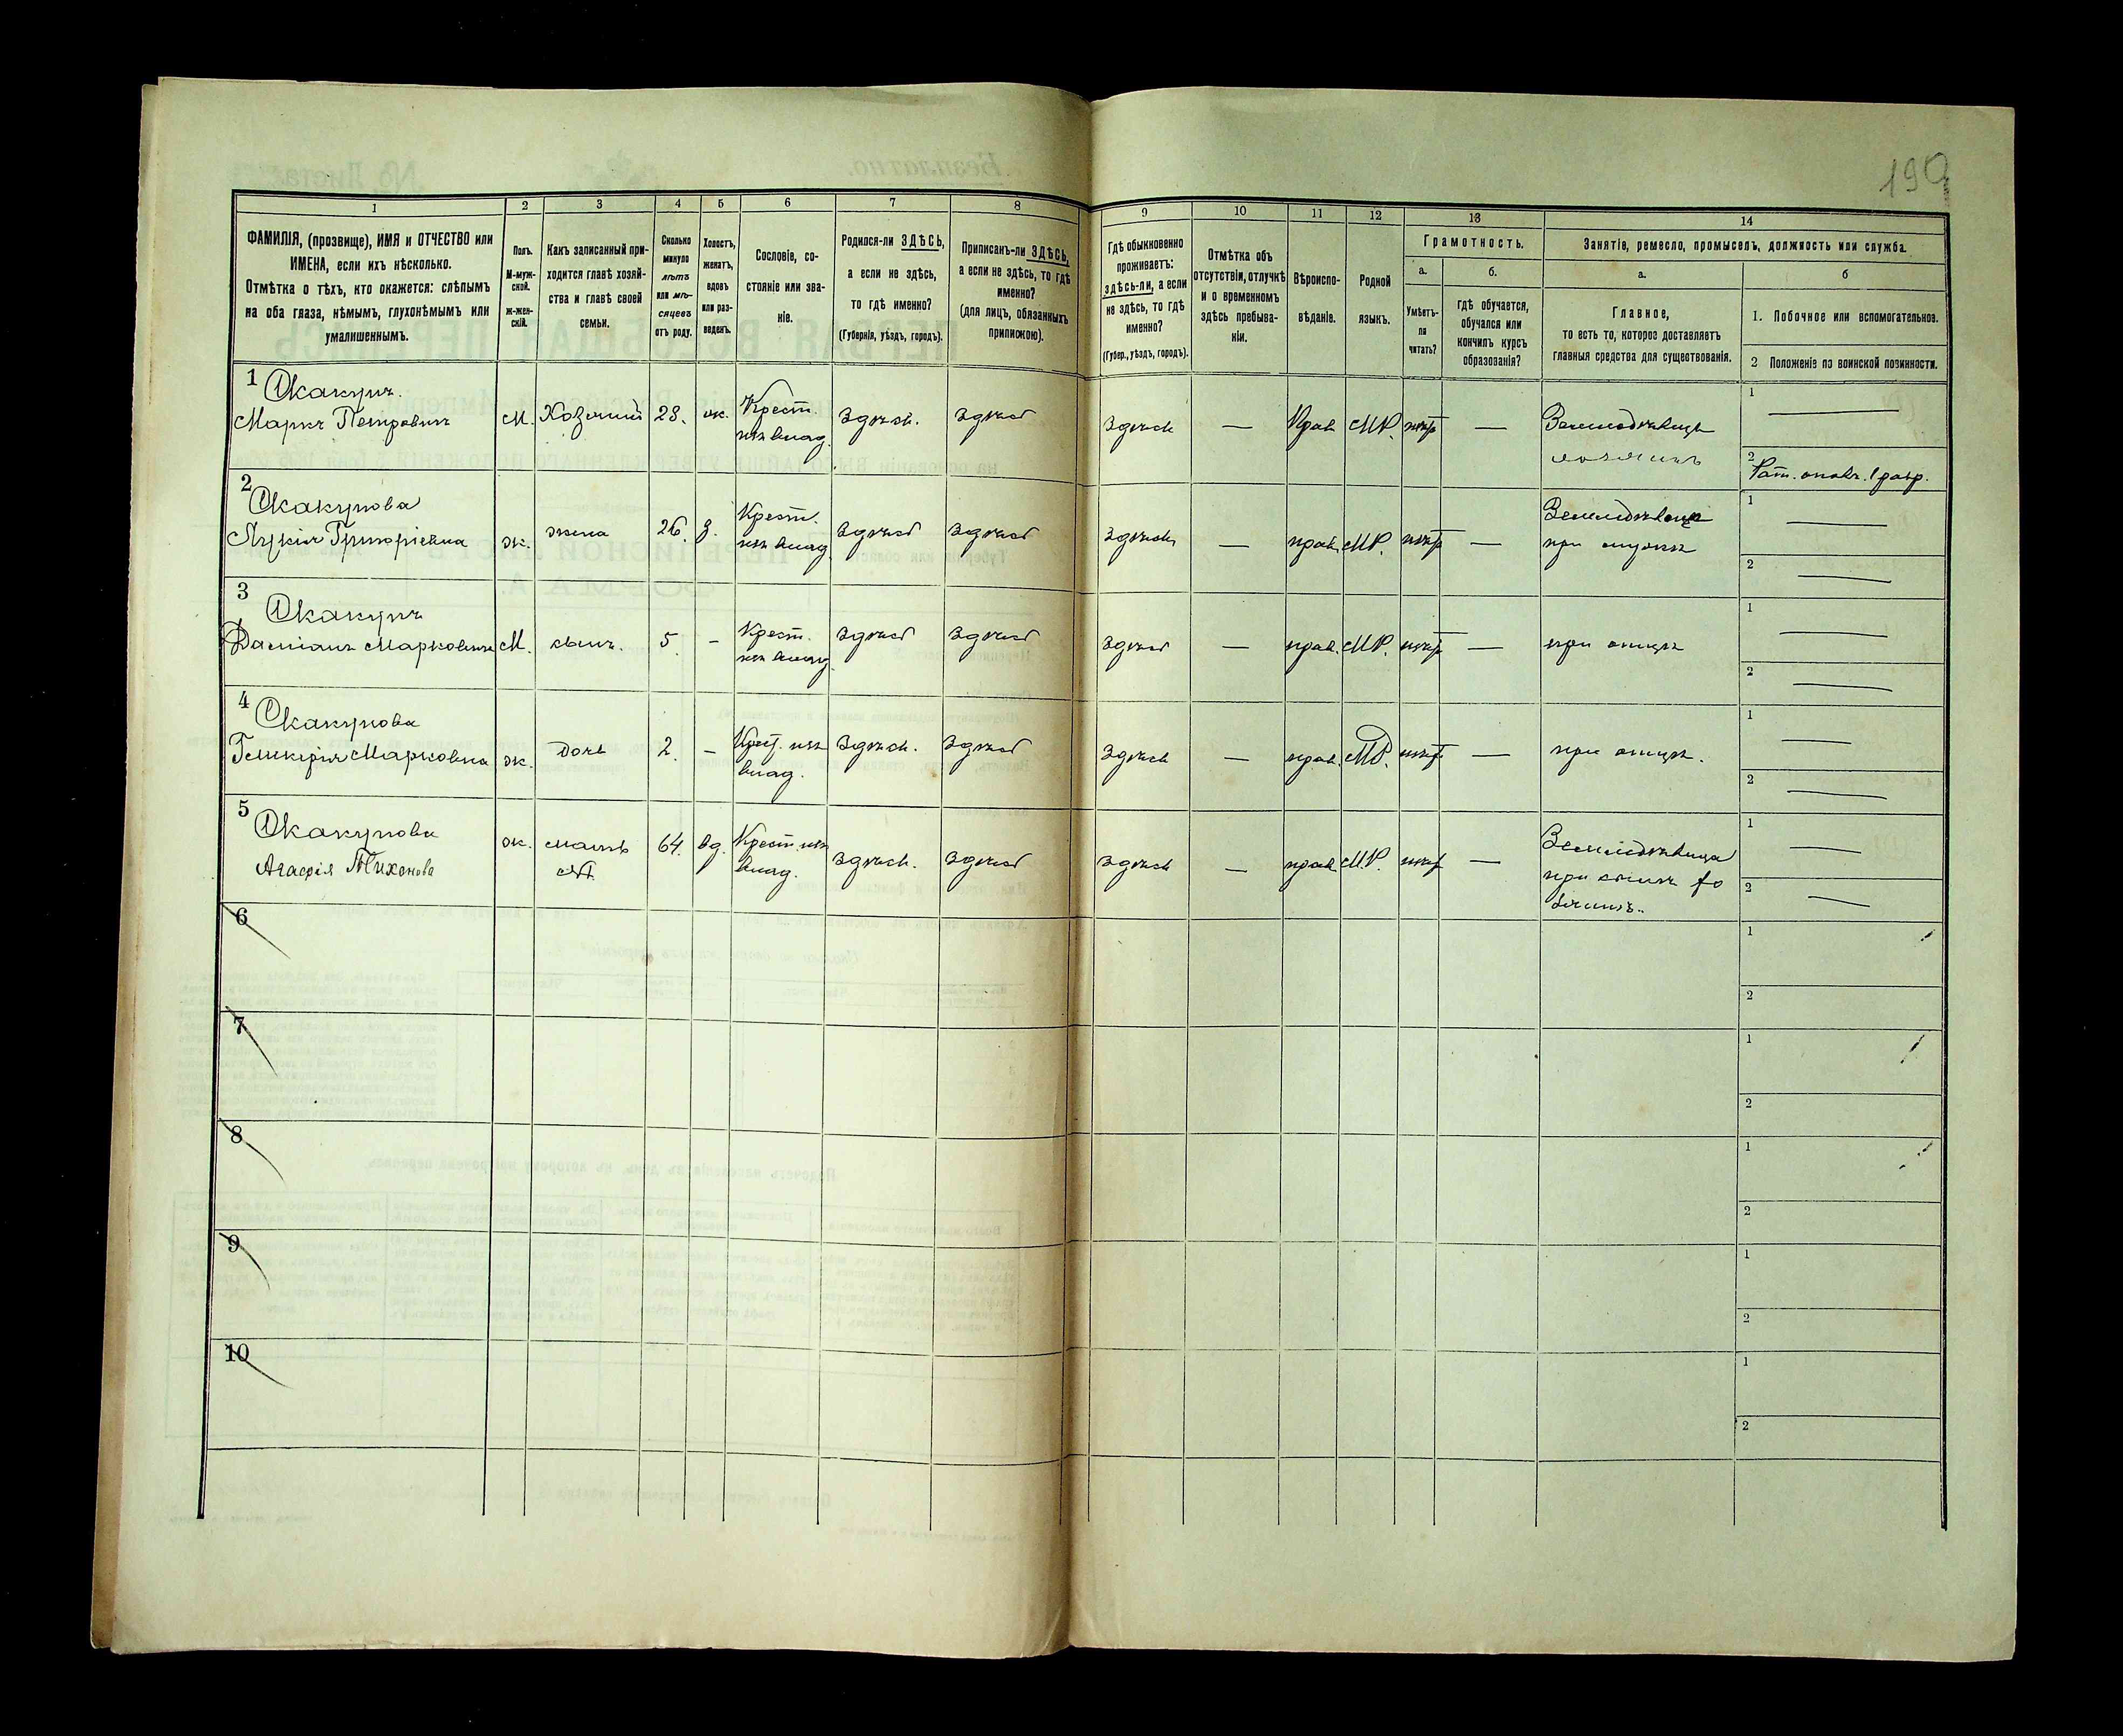 190
1 2 3 4 5 6 7 8 9 10 11 12 13 14
ФАМИЛІЯ, (прозвище), ИМЯ и ОТЧЕСТВО или
ИМЕНА, если ихъ нѣсколько.
Отмѣтка о тѣхъ, кто окажется: слѣпымъ
на оба глаза, нѣмымъ, глухонѣмымъ или
умалишеннымъ.
Полъ.
М-муж-
ской.
ж-жен-
скій.
Какъ записанный при-
ходится главѣ хозяй-
ства и главѣ своей
семьи.
Сколько
минуло
лѣтъ
или мѣ-
сяцевъ
отъ роду.
Холостъ,
женатъ,
вдовъ
или раз-
веденъ.
Сословіе, со-
стояніе или зва-
ніе.
Родился-ли ЗДѢСЬ,
а если не здѣсь,
то гдѣ именно?
(Губернія, уѣздъ, городъ).
Приписанъ-ли ЗДѢСЬ,
а если не здѣсь, то гдѣ
именно?
(для лицъ, обязанныхъ
припискою).
Гдѣ обыкновенно
проживаетъ:
здѣсь-ли, а если
не здѣсь, то гдѣ
именно?
(Губер., уѣздъ, городъ).
Отмѣтка объ
отсутствіи, отлучкѣ
и о временномъ
здѣсь пребыва-
ніи.
Вѣроиспо-
вѣданіе.
Родной
языкъ.
Грамотность.
а.
Умѣетъ-
ли
читать?
б.
гдѣ обучается,
обучался или
кончилъ курсъ
образованія?
Занятіе, ремесло, промыселъ, должность или служба.
а.
Главное,
то есть то, которое доставляетъ
главныя средства для существованія.
б
1. Побочное или вспомогательное.
2 Положеніе по воинской повинности.
1 Скакунъ.
Маркъ Петровичъ М. Хозяинъ 28. ж. Крест. изъ влад. Здѣсь. Здѣсь Здѣсь — Прав МР. нѣтъ — Земледѣлецъ хозяинъ 1 —
2 Рат. ополч. 1 разр.
2 Скакунова
Григоріевна ж. жена 26. з. Крест. изъ влад. Здѣсь Здѣсь Здѣсь — прав. МР. нѣтъ — Земледѣлица при мужѣ 1 —
2 —
3 Скакунъ
Даміанъ Марковичъ М. сынъ. 5. - Крест. изъ влад. Здѣсь Здѣсь Здѣсь — прав. МР. нѣтъ — при отцѣ 1 —
2 —
4 Скакунова
Гликерія Марковна ж. дочь 2. - Крест. изъ влад. Здѣсь. Здѣсь Здѣсь — прав. МР. нѣтъ — при отцѣ. 1 —
2 —
5 Скакунова
Агафія Тихонова ж. мать 64. вд. Крест. изъ влад. Здѣсь. Здѣсь Здѣсь — прав М.Р. нѣтъ — Земледѣлица при сынѣ 1 —
2 —
6 1
2
7 1
2
8 1
2
9 1
2
10 1
2